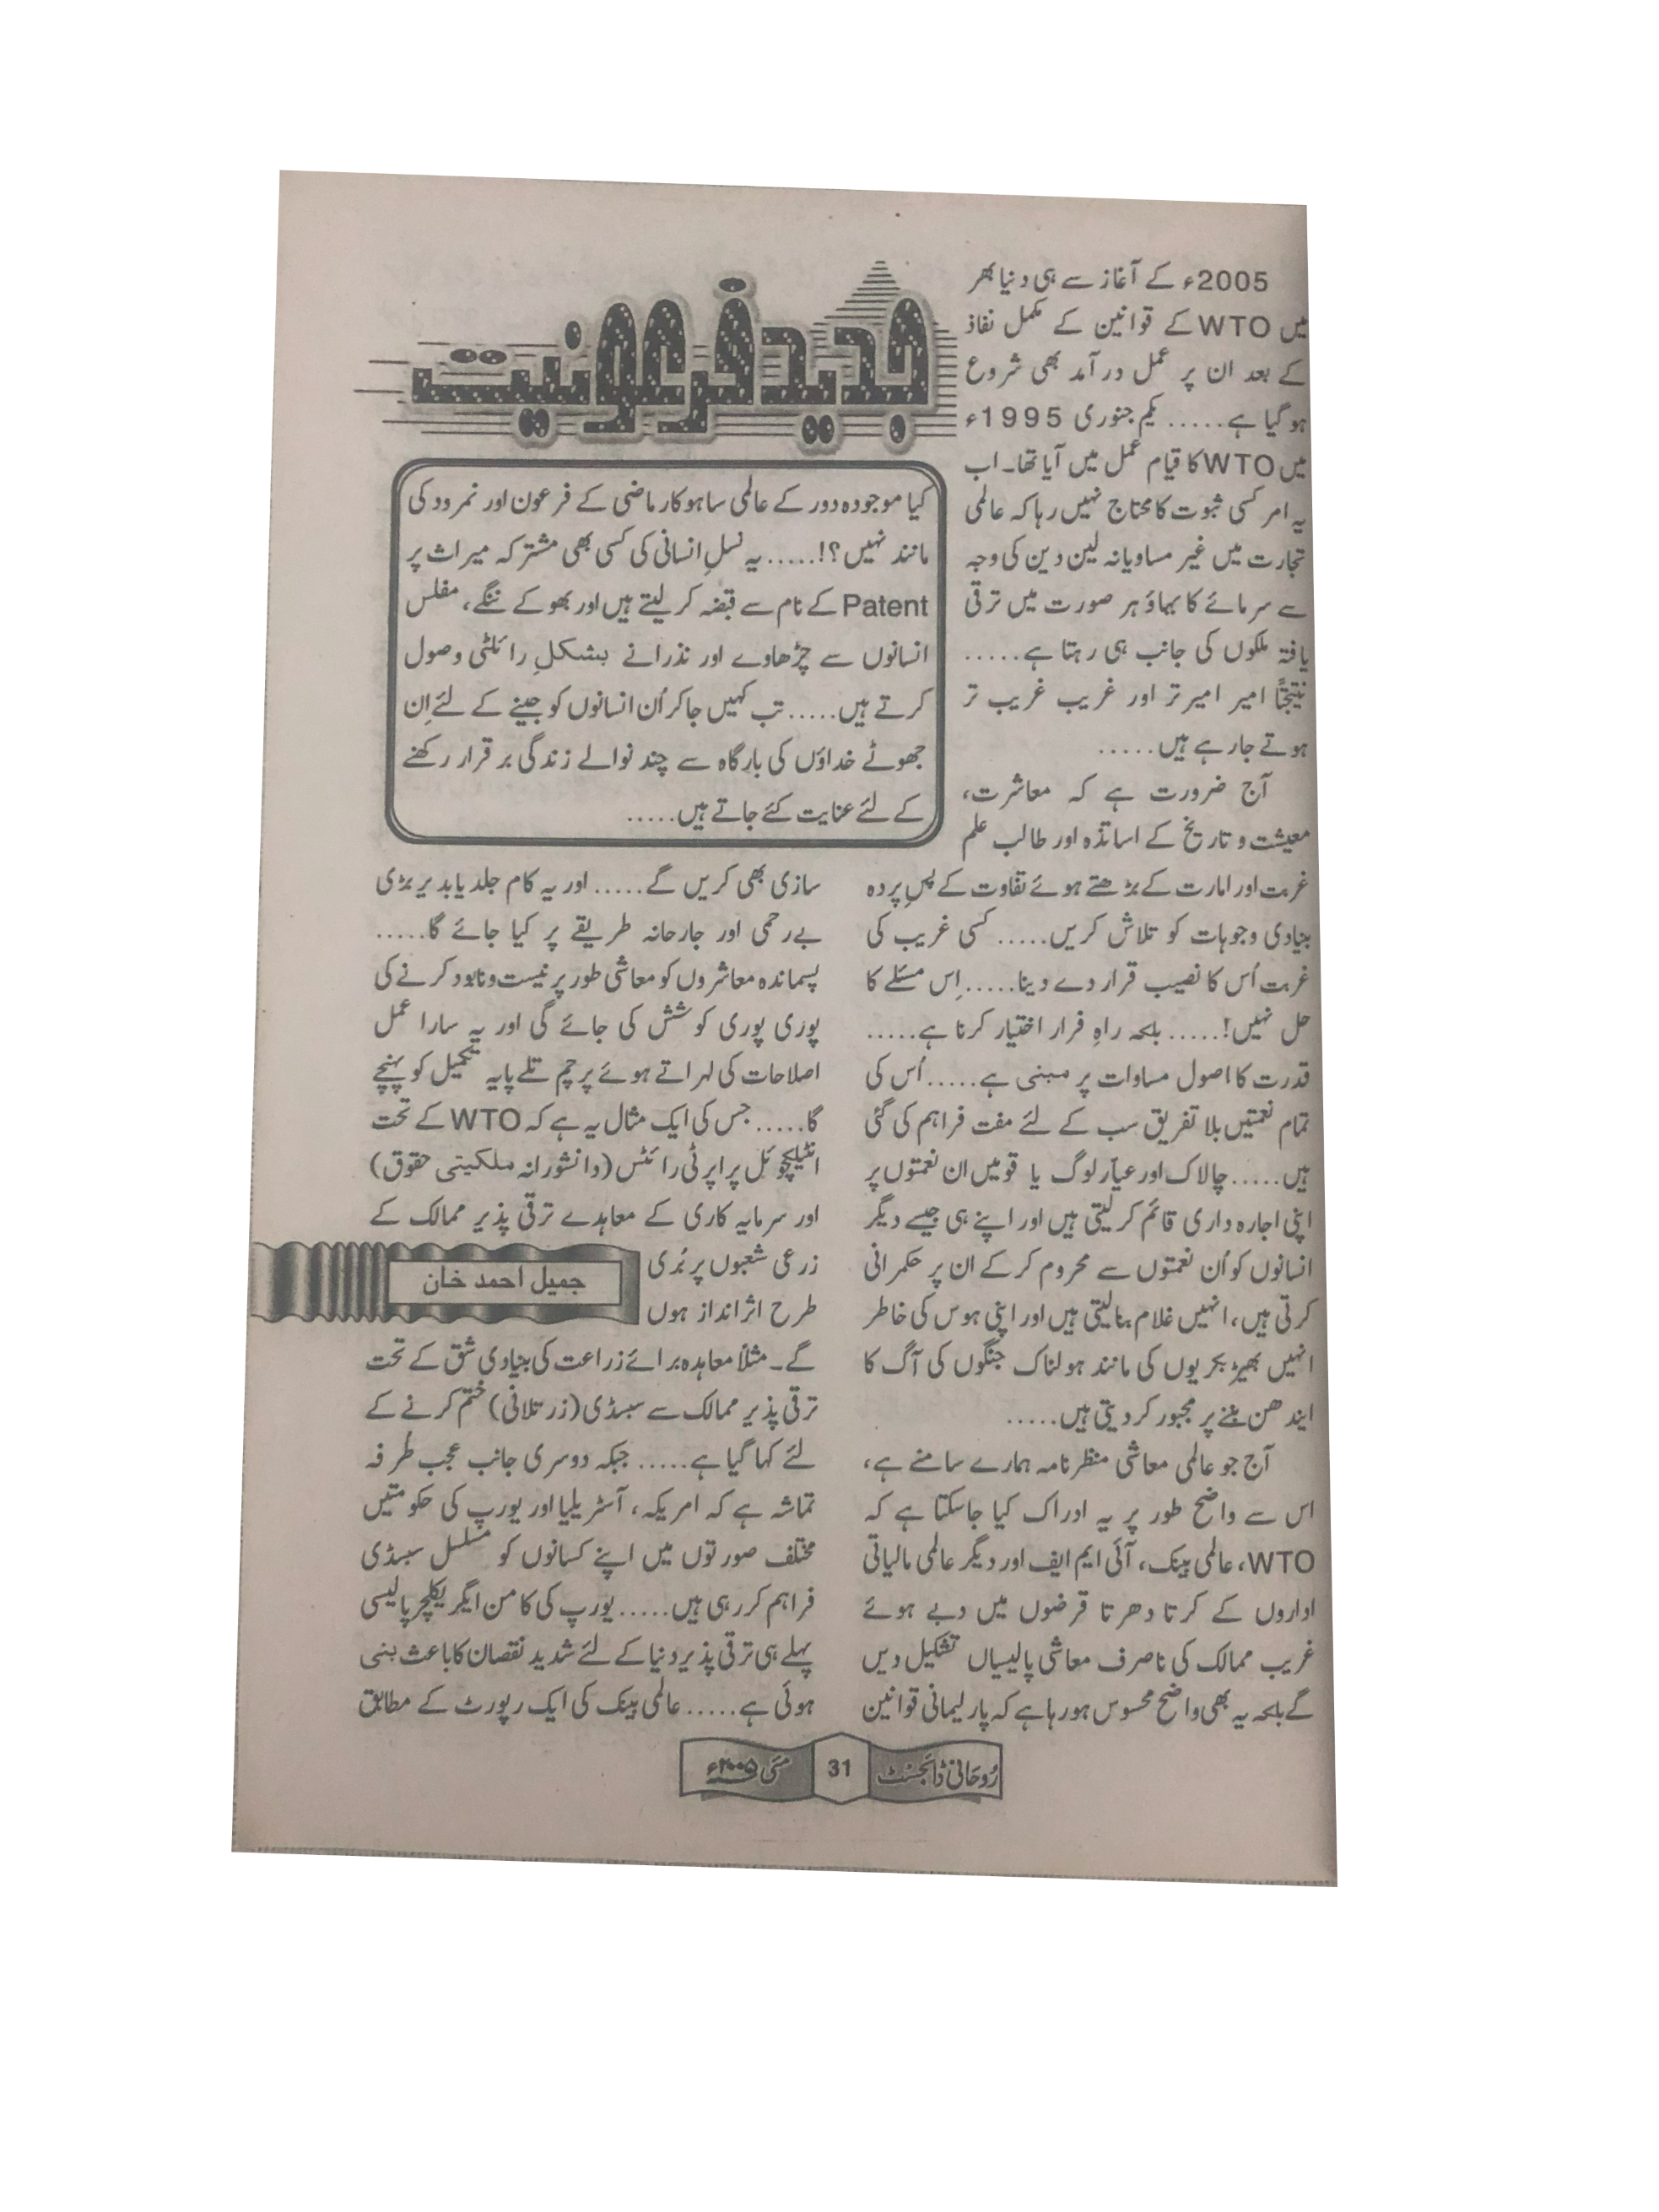 جدید فرعونیت
کیا موجودہ دور کے عالمی ساہوکار ماضی کے فرعون اور نمرود کی
مانند نہیں؟!..... یہ نسلِ انسانی کی کسی بھی مشترکہ میراث پر
Patent کے نام سے قبضہ کر لیتے ہیں اور بھوکے ننگے، مفلس
انسانوں سے چڑھاوے اور نذرانے بشکلِ رائلٹی وصول
کرتے ہیں..... تب کہیں جا کر اُن انسانوں کو جینے کے لئے اِن
جھوٹے خداؤں کی بارگاہ سے چند نوالے زندگی برقرار رکھنے
کے لئے عنایت کئے جاتے ہیں.....
2005ء کے آغاز سے ہی دنیا بھر
میں WTO کے قوانین کے مکمل نفاذ
کے بعد ان پر عمل درآمد بھی شروع
ہوگیا ہے..... یکم جنوری 1995ء
میں WTO کا قیام عمل میں آیا تھا۔ اب
یہ امر کسی ثبوت کا محتاج نہیں رہا کہ عالمی
تجارت میں غیر مساویانہ لین دین کی وجہ
سے سرمائے کا بہاؤ ہر صورت میں ترقی
یافتہ ملکوں کی جانب ہی رہتا ہے.....
نتیجتاً امیر امیر تر اور غریب غریب تر
ہوتے جارہے ہیں.....
آج ضرورت ہے کہ معاشرت،
معیشت و تاریخ کے اساتذہ اور طالب علم
غربت اور امارت کے بڑھتے ہوئے تفاوت کے پسِ پردہ
بنیادی وجوہات کو تلاش کریں..... کسی غریب کی
غربت اُس کا نصیب قرار دے دینا..... اِس مسئلے کا
حل نہیں!..... بلکہ راہِ فرار اختیار کرنا ہے.....
قدرت کا اصول مساوات پر مبنی ہے..... اُس کی
تمام نعمتیں بلا تفریق سب کے لئے مفت فراہم کی گئی
ہیں..... چالاک اور عیار لوگ یا قومیں ان نعمتوں پر
اپنی اجارہ داری قائم کر لیتی ہیں اور اپنے ہی جیسے دیگر
انسانوں کو اُن نعمتوں سے محروم کر کے ان پر حکمرانی
کرتی ہیں، انہیں غلام بنالیتی ہیں اور اپنی ہوس کی خاطر
انہیں بھیڑ بکریوں کی مانند ہولناک جنگوں کی آگ کا
ایندھن بننے پر مجبور کر دیتی ہیں.....
آج جو عالمی معاشی منظرنامہ ہمارے سامنے ہے،
اس سے واضح طور پر یہ ادراک کیا جاسکتا ہے کہ
WTO، عالمی بینک، آئی ایم ایف اور دیگر عالمی مالیاتی
اداروں کے کرتا دھرتا قرضوں میں دبے ہوئے
غریب ممالک کی ناصرف معاشی پالیسیاں تشکیل دیں
گے بلکہ یہ بھی واضح محسوس ہورہا ہے کہ پارلیمانی قوانین
سازی بھی کریں گے..... اور یہ کام جلد یا بدیر بڑی
بے رحمی اور جارحانہ طریقے پر کیا جائے گا.....
پسماندہ معاشروں کو معاشی طور پر نیست و نابود کرنے کی
پوری پوری کوشش کی جائے گی اور یہ سارا عمل
اصلاحات کی لہراتے ہوئے پرچم تلے پایہ تکمیل کو پہنچے
گا..... جس کی ایک مثال یہ ہے کہ WTO کے تحت
انٹیلیچوئل پراپرٹی رائٹس (دانشورانہ ملکیتی حقوق)
اور سرمایہ کاری کے معاہدے ترقی پذیر ممالک کے
زرعی شعبوں پر بُری
طرح اثر انداز ہوں
جمیل احمد خان
گے۔ مثلاً معاہدہ برائے زراعت کی بنیادی شق کے تحت
ترقی پذیر ممالک سے سبسڈی (زر تلافی) ختم کرنے کے
لئے کہا گیا ہے..... جبکہ دوسری جانب عجب طرفہ
تماشہ ہے کہ امریکہ، آسٹریلیا اور یورپ کی حکومتیں
مختلف صورتوں میں اپنے کسانوں کو مسلسل سبسڈی
فراہم کررہی ہیں..... یورپ کی کامن ایگریکلچر پالیسی
پہلے ہی ترقی پذیر دنیا کے لئے شدید نقصان کا باعث بنی
ہوئی ہے..... عالمی بینک کی ایک رپورٹ کے مطابق
رُوحانی ڈائجسٹ 31 مئی ۲۰۰۵ء